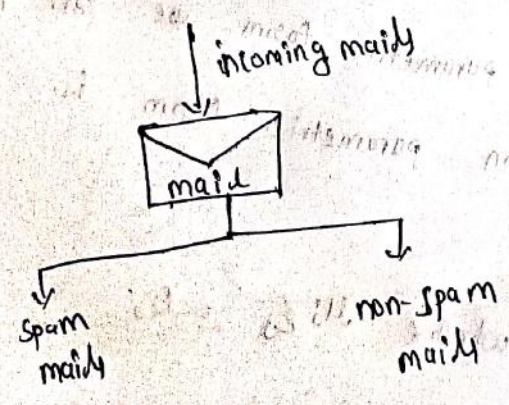 incoming mails
mail
spam
mails
non-spam
mails